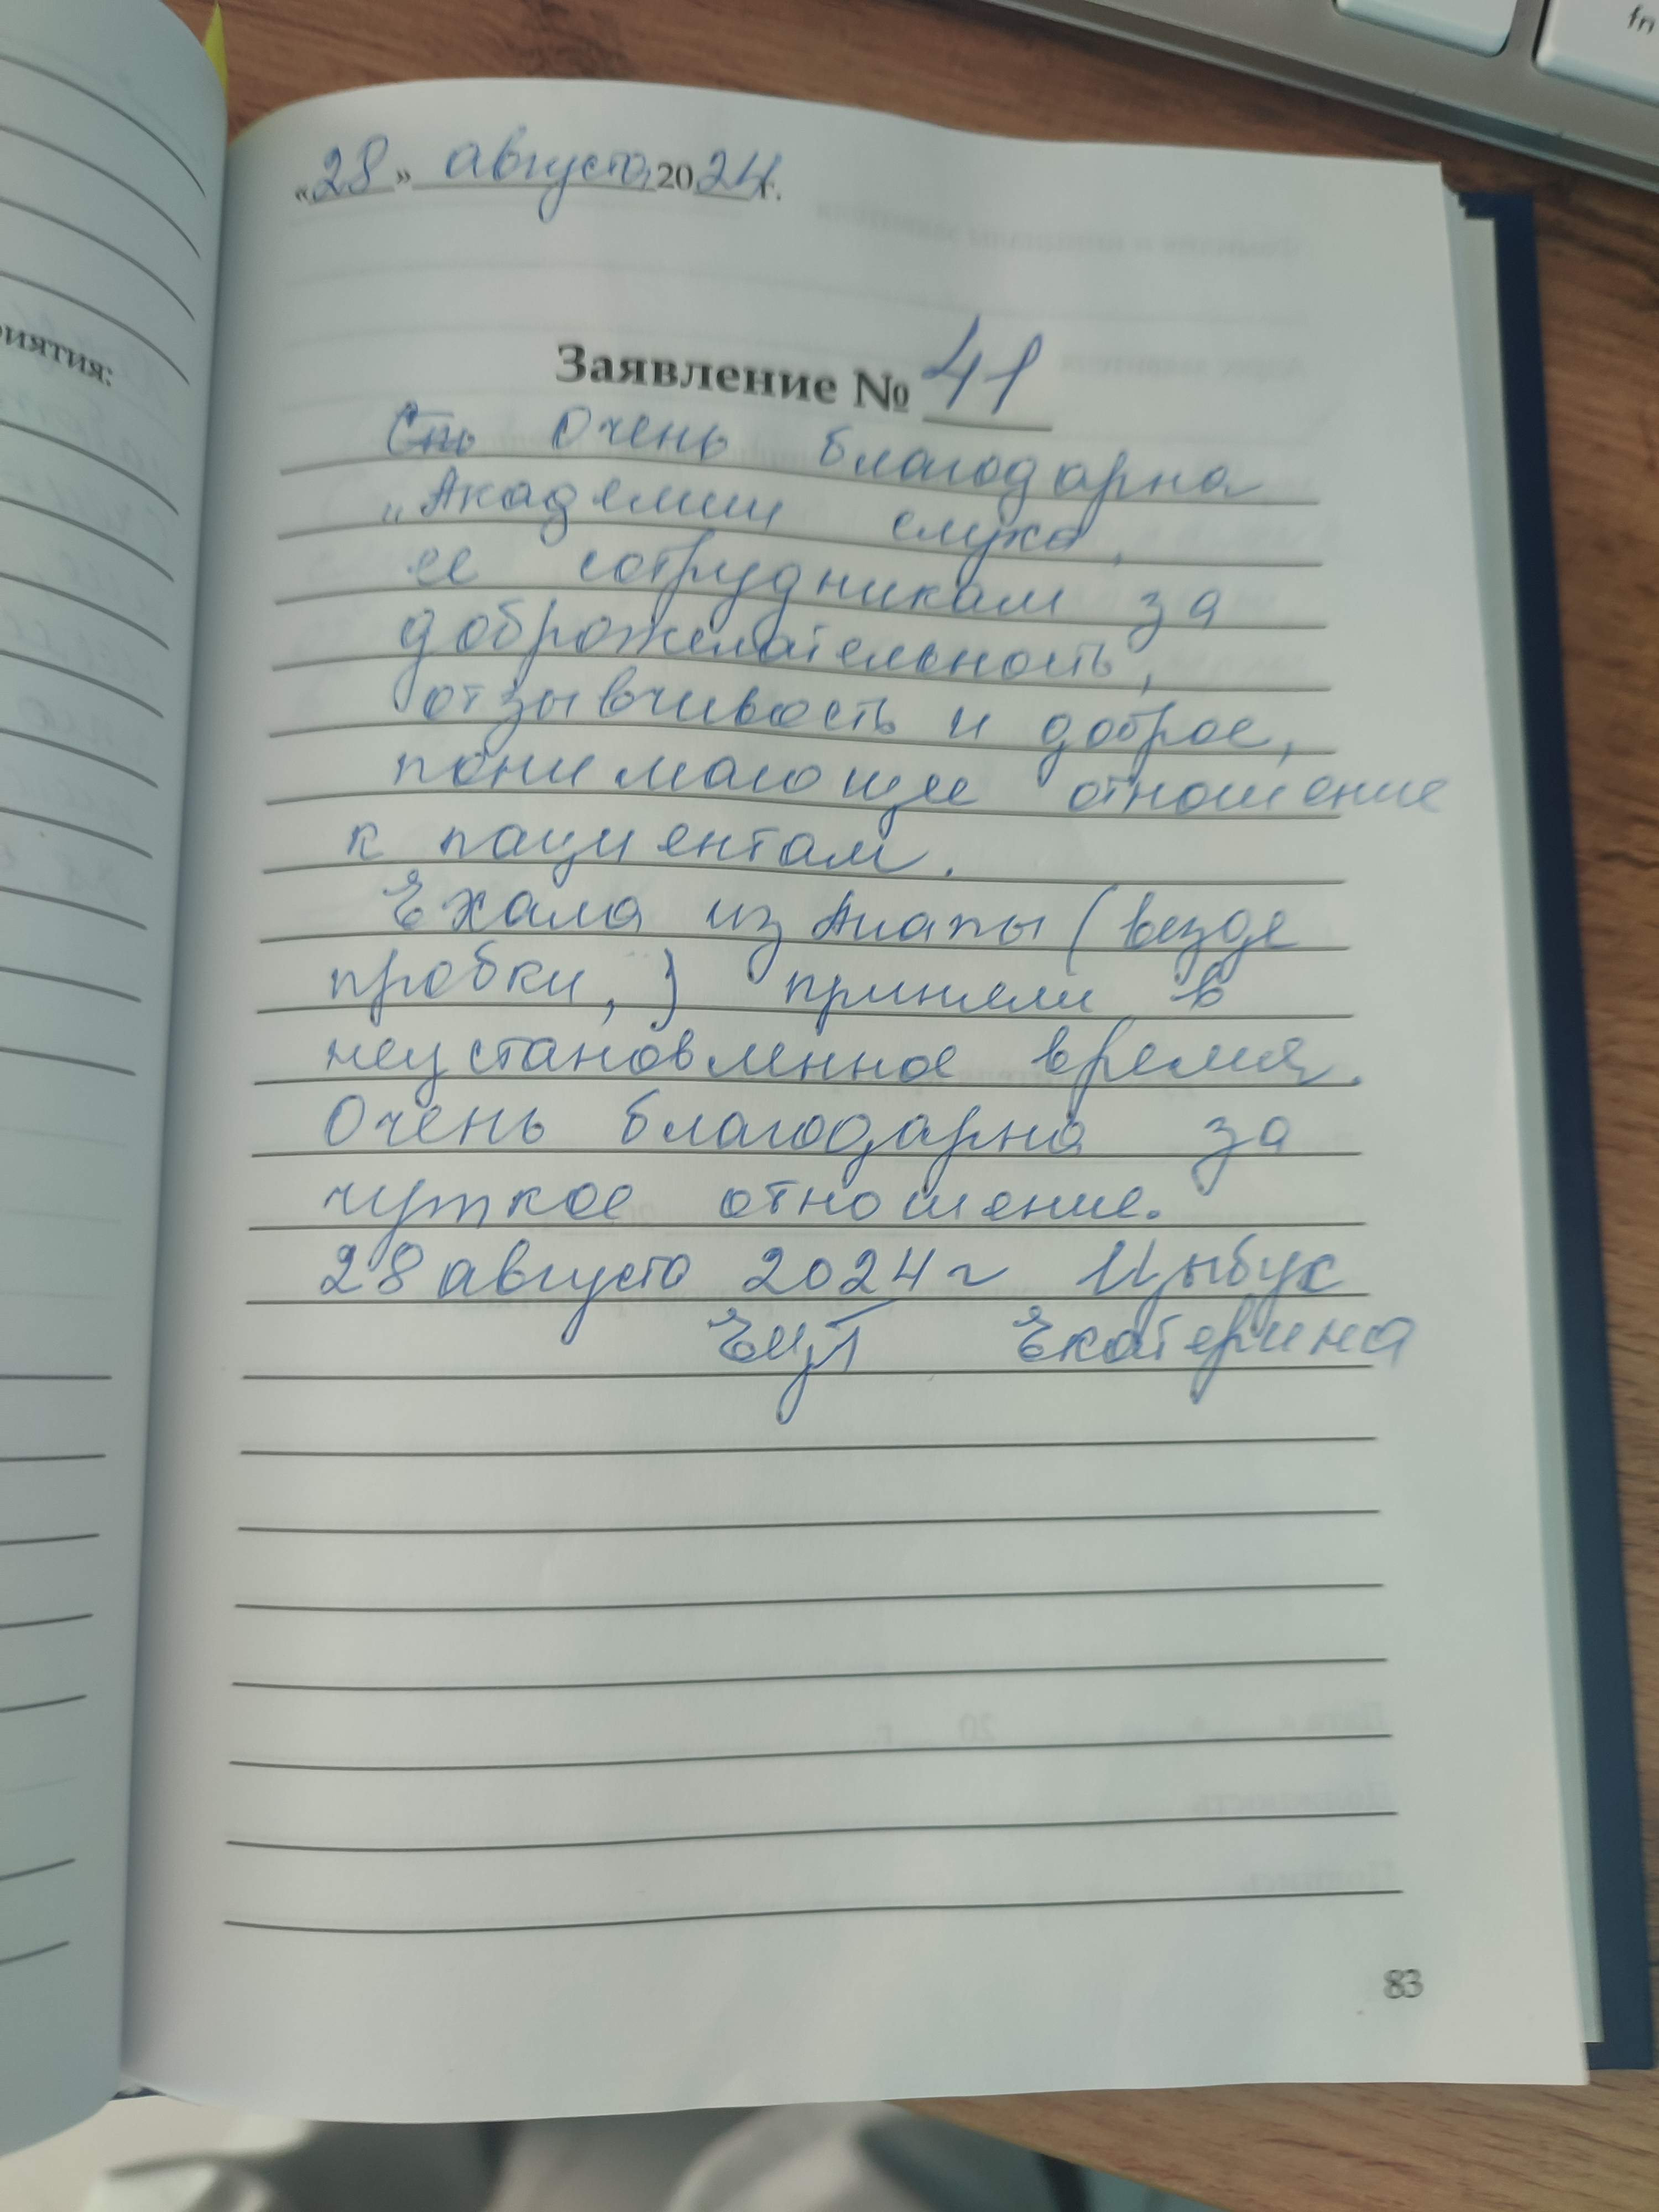 «28» августа 2024г.
Заявление № 41
Очень благодарна
„Академии слуха,
ее сотрудникам за
доброжелательность,
отзывчивость и доброе,
понимающее отношение
к пациентам.
Ехала из Анапы (везде
пробки,) приняли в
неустановленное время.
Очень благодарна за
чуткое отношение.
28 августа 2024 г Цыбух
Екатерина
83
риятия:
fn